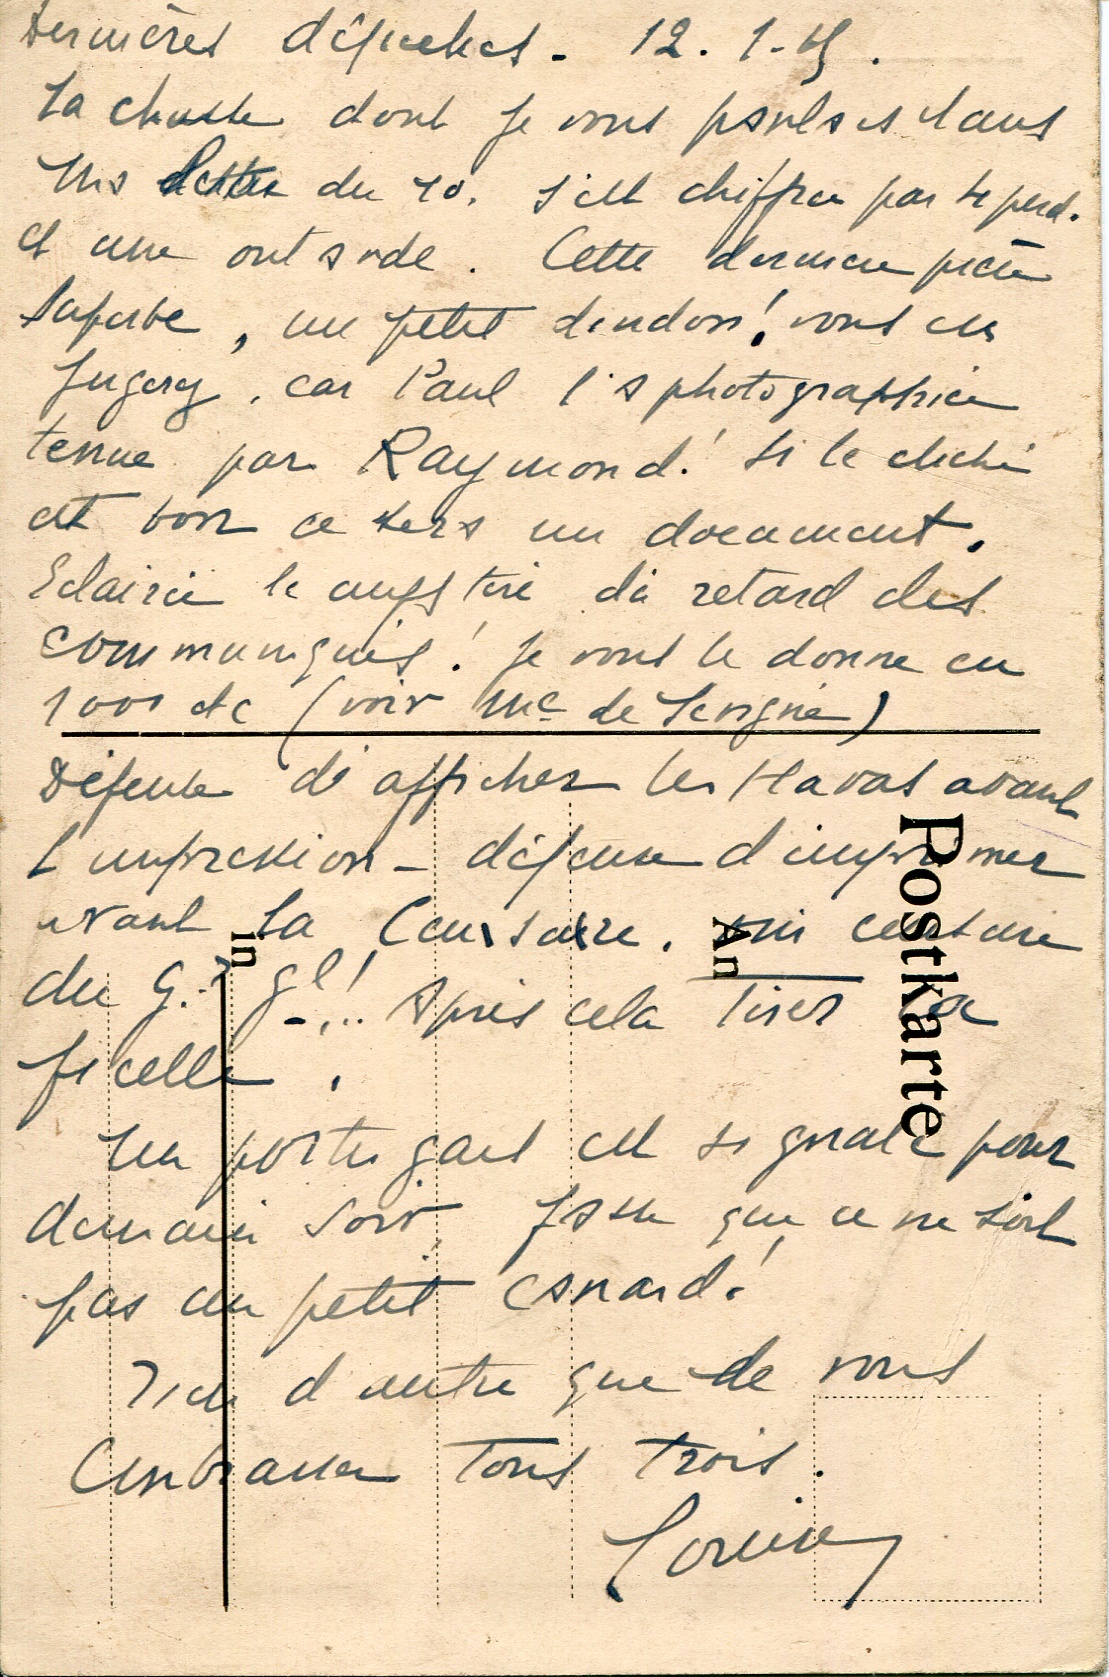 Dernières dépêches. 12.1.45.
La chasse dont je vous parlais dans
ma lettre du 10. s'est chiffrée par 4 perd.
et une outarde. Cette dernière pièce
superbe, un petit dindon! vous en
jugerez, car Paul l'a photographiée
tenue par Raymond! Si le cliché
est bon ce sera un document.
Eclairci le mystère du retard des
communiqués! Je vous le donne en
1000 etc (voir Me de Sévigné)
Défense d'afficher les Havas avant
l'impression - défense d'imprimer
avant la Censure. oui censure
du G. gl! Après cela tirer la
ficelle.
Un portugais est signalé pour
demain soir, que ce ne soit
pas un petit canard!
Rien d'autre que de vous
embrasser tous trois.
Postkarte
An
in